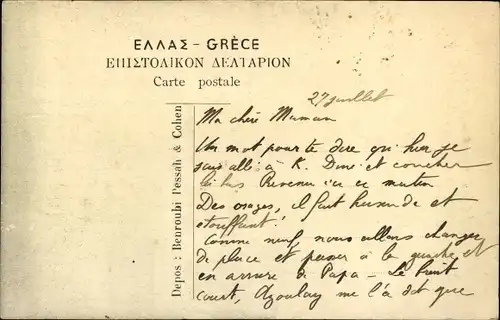 ΕΛΛΑΣ - GRÈCE
ΕΠΙΣΤΟΛΙΚΟΝ ΔΕΛΤΑΡΙΟΝ
Carte postale
Depos : Benroubi Pessah & Cohen
27 juillet
Ma chère Maman
Un mot pour te dire qu'hier je
suis allé à K. Diné et coucher
là bas Revenu ici ce matin
Des orages, il fait humide et
étouffant!
Comme neuf, nous allons changer
de place et passer à la gauche et
en arrière de Papa - Le bruit
court, Azoulay me l'a dit que